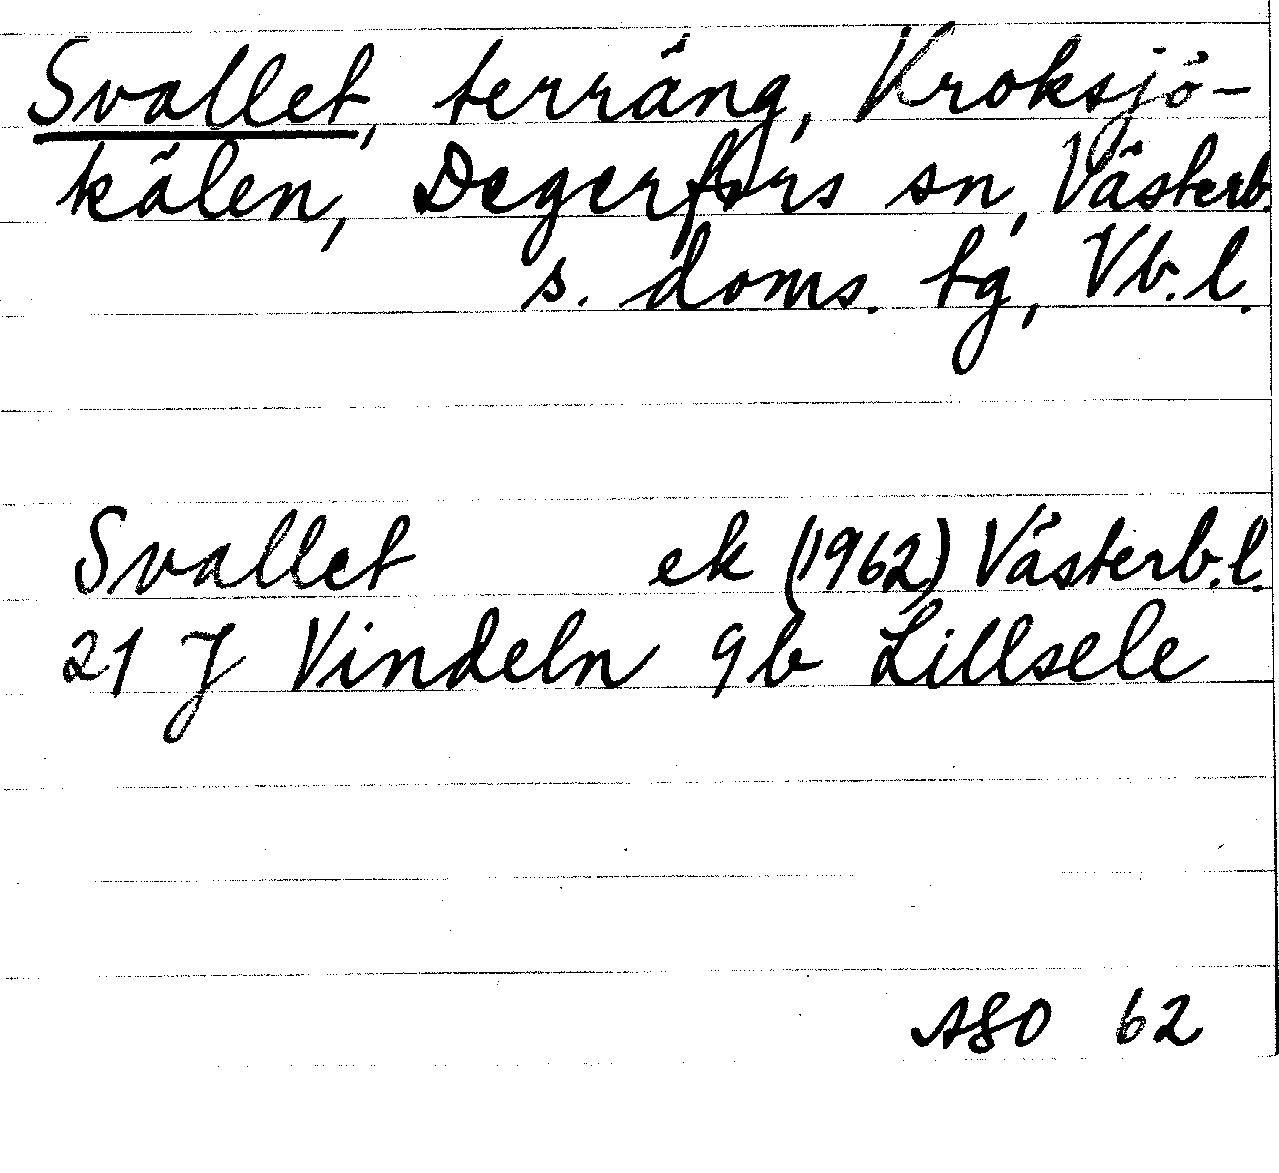 Svallet, terräng, Kroksjö-
kälen, Degerfors sn, Västerb.
s. doms. tg, Vb. l.
Svallet ek (1962) Västerb. l.
21 J Vindeln 9b Lillsele
ASO 62